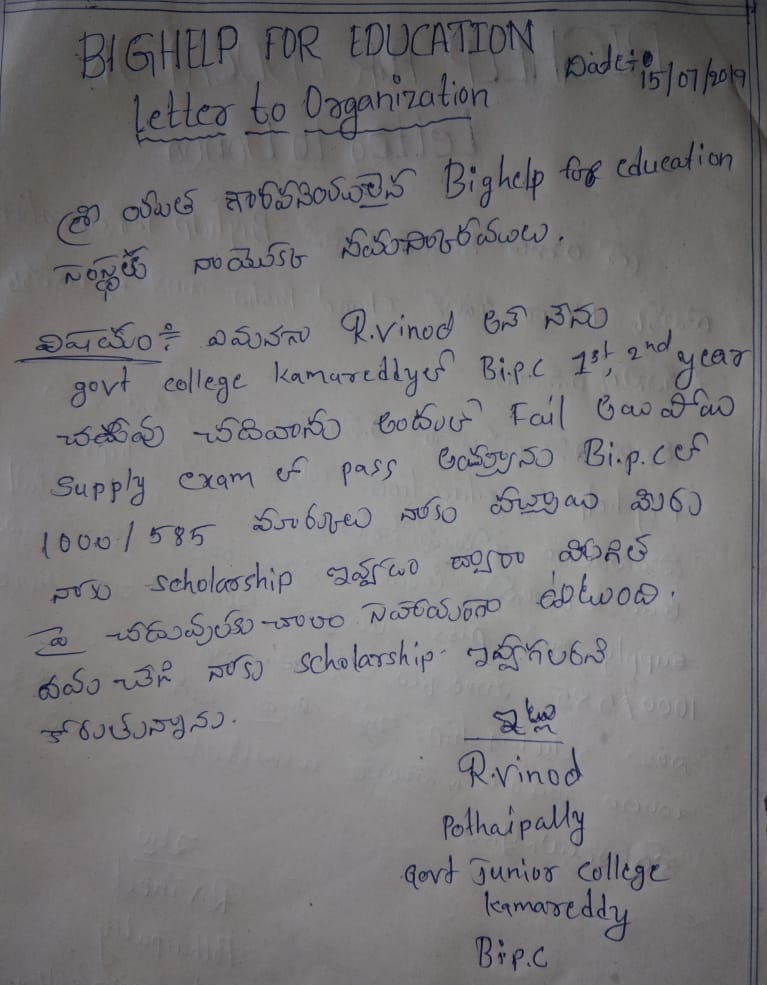 BIGHELP FOR EDUCATION
Date:- 15/07/2019
Letter to Organization
శ్రీ యుత గౌరవనీయులైన Bighelp for education
సంస్థకు నాయొక్క నమస్కారములు.
విషయం:- ఏమనగా R.vinod అనే నేను
govt college Kamareddyలో Bi.p.c 1st, 2nd year
చదువు చదివాను అందులో Fail అయి పోయి
Supply exam లో pass అయ్యాను Bi.p.c లో
1000/585 మార్కులు నాకు వచ్చాయి మీరు
నాకు scholarship ఇవ్వడం ద్వారా మిగిలిత
పై చదువులకు చాలా సహాయంగా ఉంటుంది.
దయ చేసి నాకు scholarship ఇవ్వగలరని
కోరుతున్నాను.
ఇట్లు
R.vinod
Pothaipally
Govt Junior College
Kamareddy
Bi.p.c